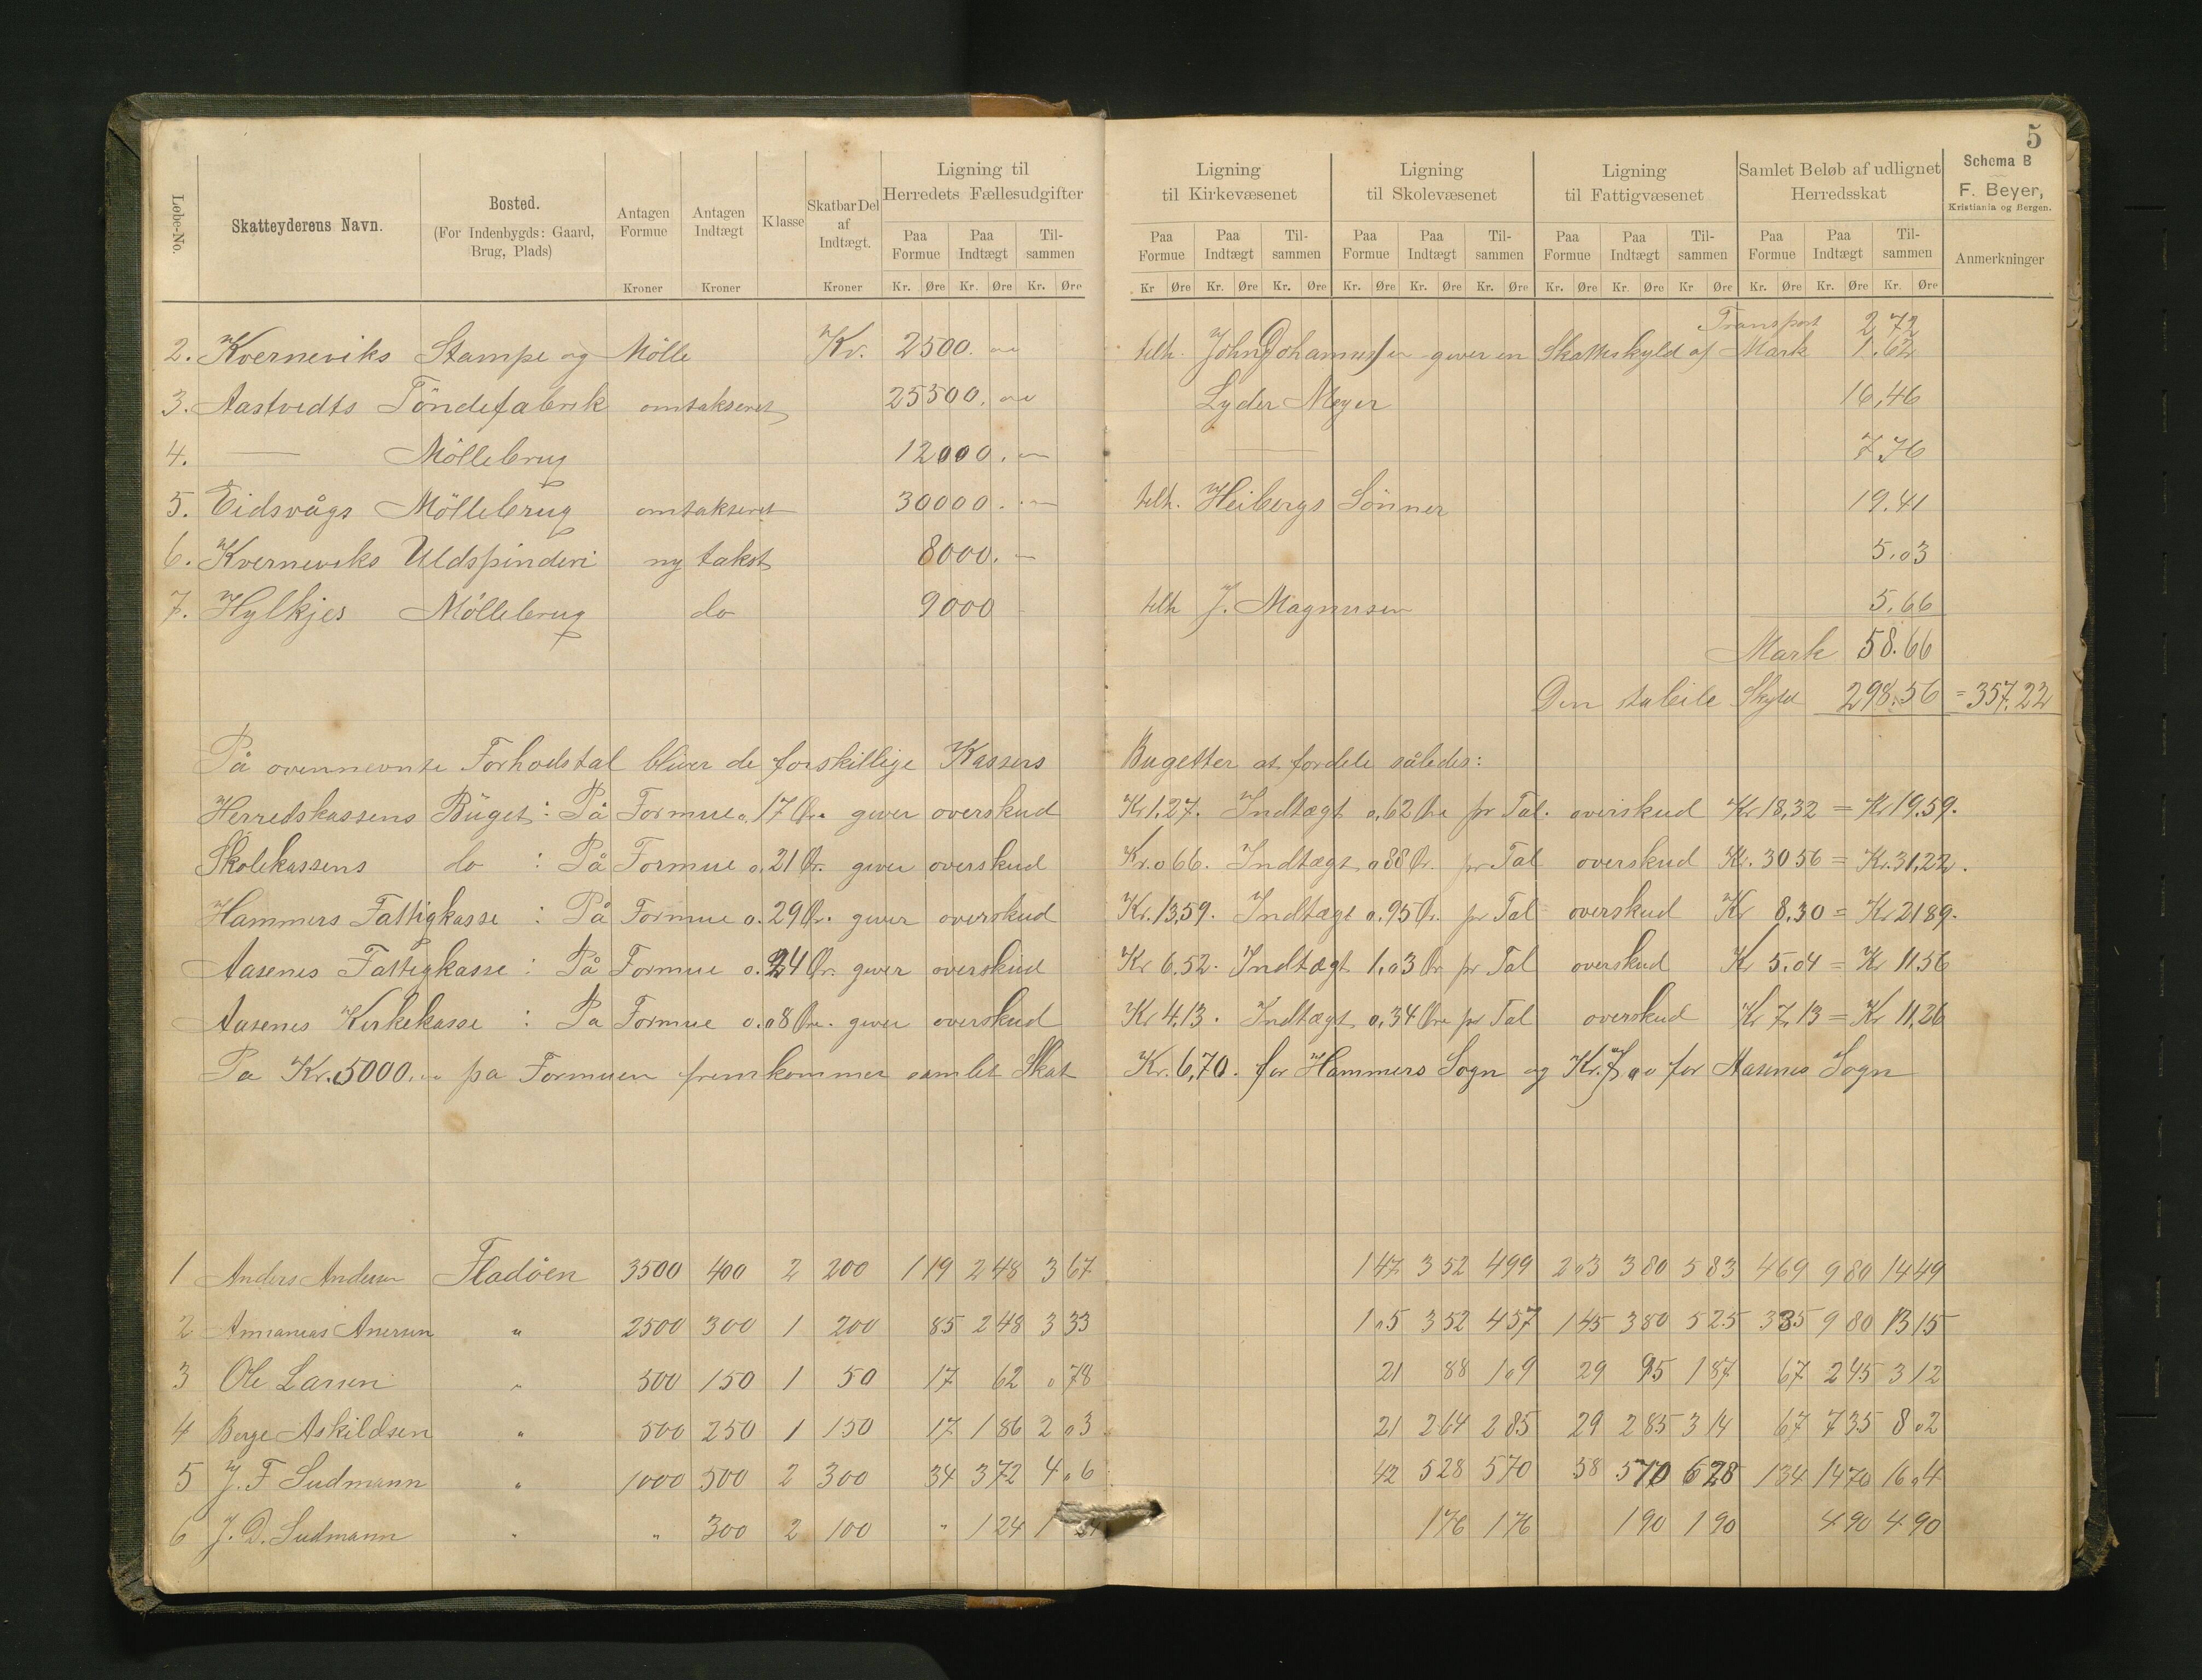 5
Løbe-No. Skatteyderens Navn. Bosted. (For Indenbygds: Gaard, Brug, Plads) Antagen Formue Kroner Antagen Indtægt Kroner Klasse Skatbar Del af Indtægt. Kroner Ligning til Herredets Fællesudgifter Ligning til Kirkevæsenet Ligning til Skolevæsenet Ligning til Fattigvæsenet Samlet Beløb af udlignet Herredsskat Schema B F. Beyer, Kristiania og Bergen.
Paa Formue Paa Indtægt Til-sammen Paa Formue Paa Indtægt Til-sammen Paa Formue Paa Indtægt Til-sammen Paa Formue Paa Indtægt Til-sammen Paa Formue Paa Indtægt Til-sammen Anmerkninger
Kr. Øre Kr. Øre Kr. Øre Kr Øre Kr. Øre Kr. Øre Kr. Øre Kr. Øre Kr. Øre Kr. Øre Kr. Øre Kr Øre Kr. Øre Kr. Øre Kr. Øre
Transport 2,72
2. Kverneviks Stampe og Mölle Kr. 2500. oo tilh. John Johannessen giver en Skatteskyld af Mark 1.62
3. Aastvedts Töndefabrik omtakseret 25500. oo Lyder Meyer 16,46
4. — Möllebrug 12000. — — 7,76
5. Eidsvågs Möllebrug omtakseret 30000. — tilh. Heibergs Sönner 19.41
6. Kverneviks Uldspinderi ny takst 8000. — 5,03
7. Hylkjes Möllebrug do 9000 tilh J. Magnusen 5,66
Mark 58.66
Den stabile Skyld 298.56 = 357.22
På ovennevnte Forholdstal bliver de forskillige Kassers Bugetter at fordele således:
Herredskassens Büget: På Formue o,17 Ør. giver overskud Kr 1,27. Indtægt o,62 Øre pr Tal. overskud Kr 18,32 = Kr 19.59.
Skolekassens do : På Formue o,21 Ør. giver overskud Kr. o 66. Indtægt o 88 Ør. pr Tal overskud Kr. 30 56 = Kr. 31,22.
Hammers Fattigkasse : På Formue o.29 Ør. giver overskud Kr. 13,59. Indtægt o.95 Ør. pr Tal overskud Kr 8,30 = Kr 21 89.
Aasenes Fattigkasse : På Formue o.24 Ør. giver overskud Kr 6,52. Indtægt 1,03 Ør pr Tal overskud Kr 5.04 = Kr 11,56
Aasenes Kirkekasse : Pa Formue o.o8 Øre. giver overskud Kr 4,13. Indtægt o,34 Øre pr Tal overskud Kr 7,13 = Kr 11,26
Pa Kr. 5000.oo pa Formuen fremkommer samlet Skat Kr. 6,70. for Hammers Sogn og Kr. 7 oo for Aasenes Sogn
1 Anders Andersen Fladöen 3500 400 2 200 1 19 2 48 3 67 1 47 3 52 4 99 2 o3 3 80 5 83 4 69 9 80 14 49
2 Annanias Anersen " 2500 300 1 200 85 2 48 3 33 1 o5 3 52 4 57 1 45 3 80 5 25 3 35 9 80 13 15
3 Ole Larsen " 500 150 1 50 17 62 o 78 21 88 1 o9 29 95 1 87 67 2 45 3 12
4 Berge Askildsen " 500 250 1 150 17 1 86 2 o3 21 2 64 2 85 29 2 85 3 14 67 7 35 8 o2
5 J. F Sudmann " 1000 500 2 300 34 3 72 4 o6 42 5 28 5 70 58 5 70 6 28 1 34 14 70 16 o4
6 J. D. Sudmann " " 300 2 100 " 1 24 1 1 76 1 76 1 90 1 90 4 90 4 90